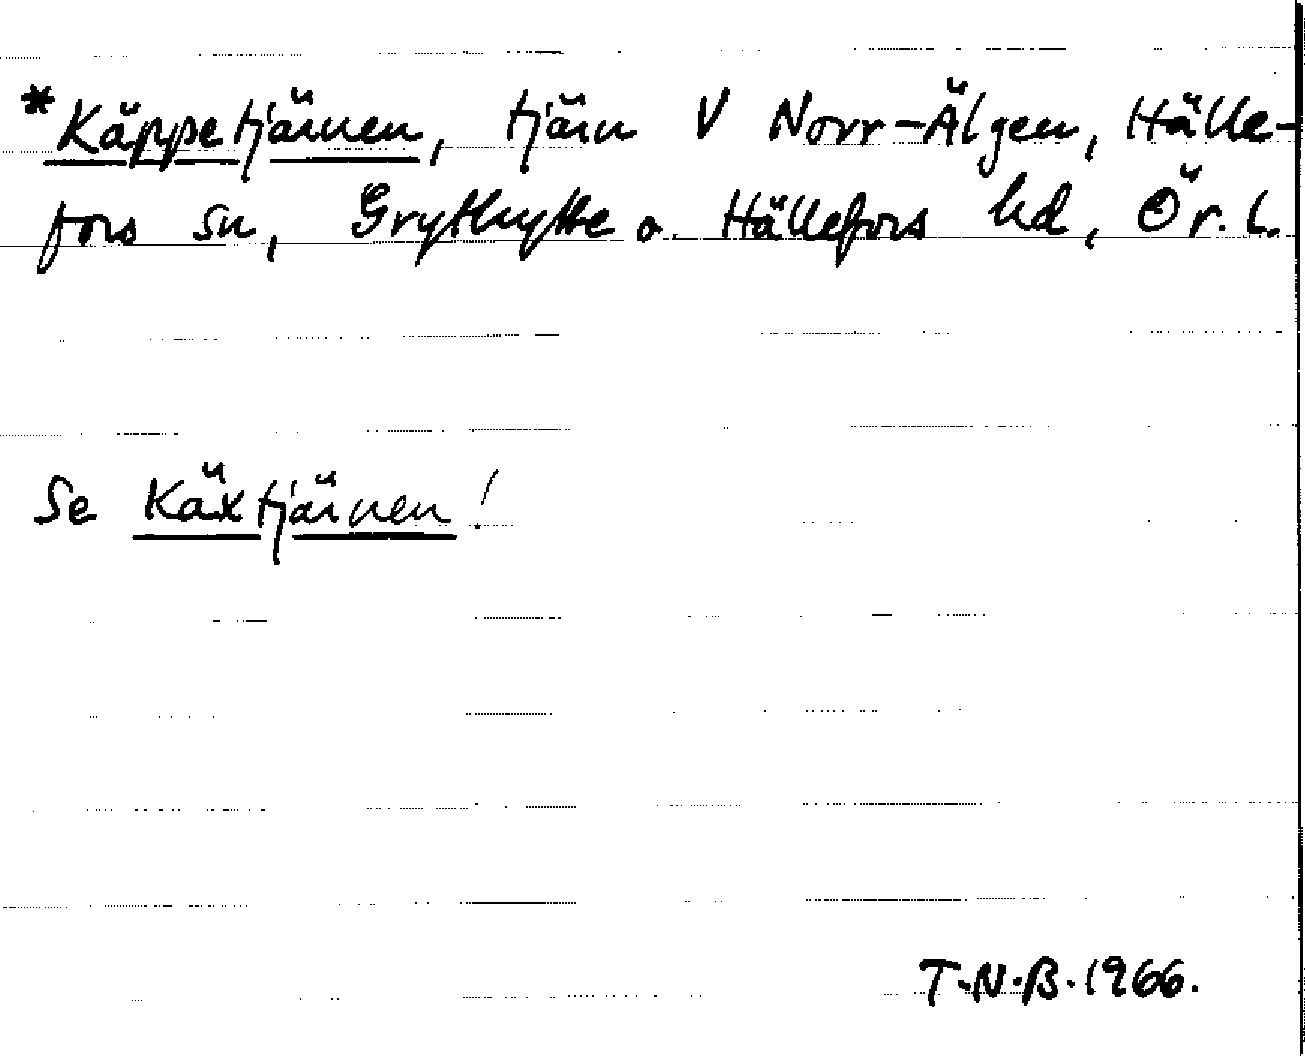 *Käppetjärnen, tjärn V Norr-Älgen, Hälle-
fors sn, Grythytte o. Hällefors hd, Ör. l.
Se Käxtjärnen!
T.N.B. 1966.